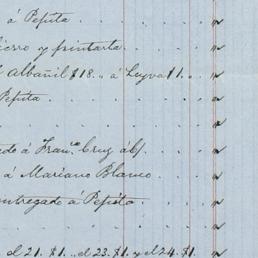 á Pepita
ierro y pintarla
Albañil $18.. á Leyva $1..
Pepita
ado á Fran.co Cruz á b/.
á Mariano Blanco
entregado á Pepita
el 21. $1.., el 23. $1. y el 24. $1.